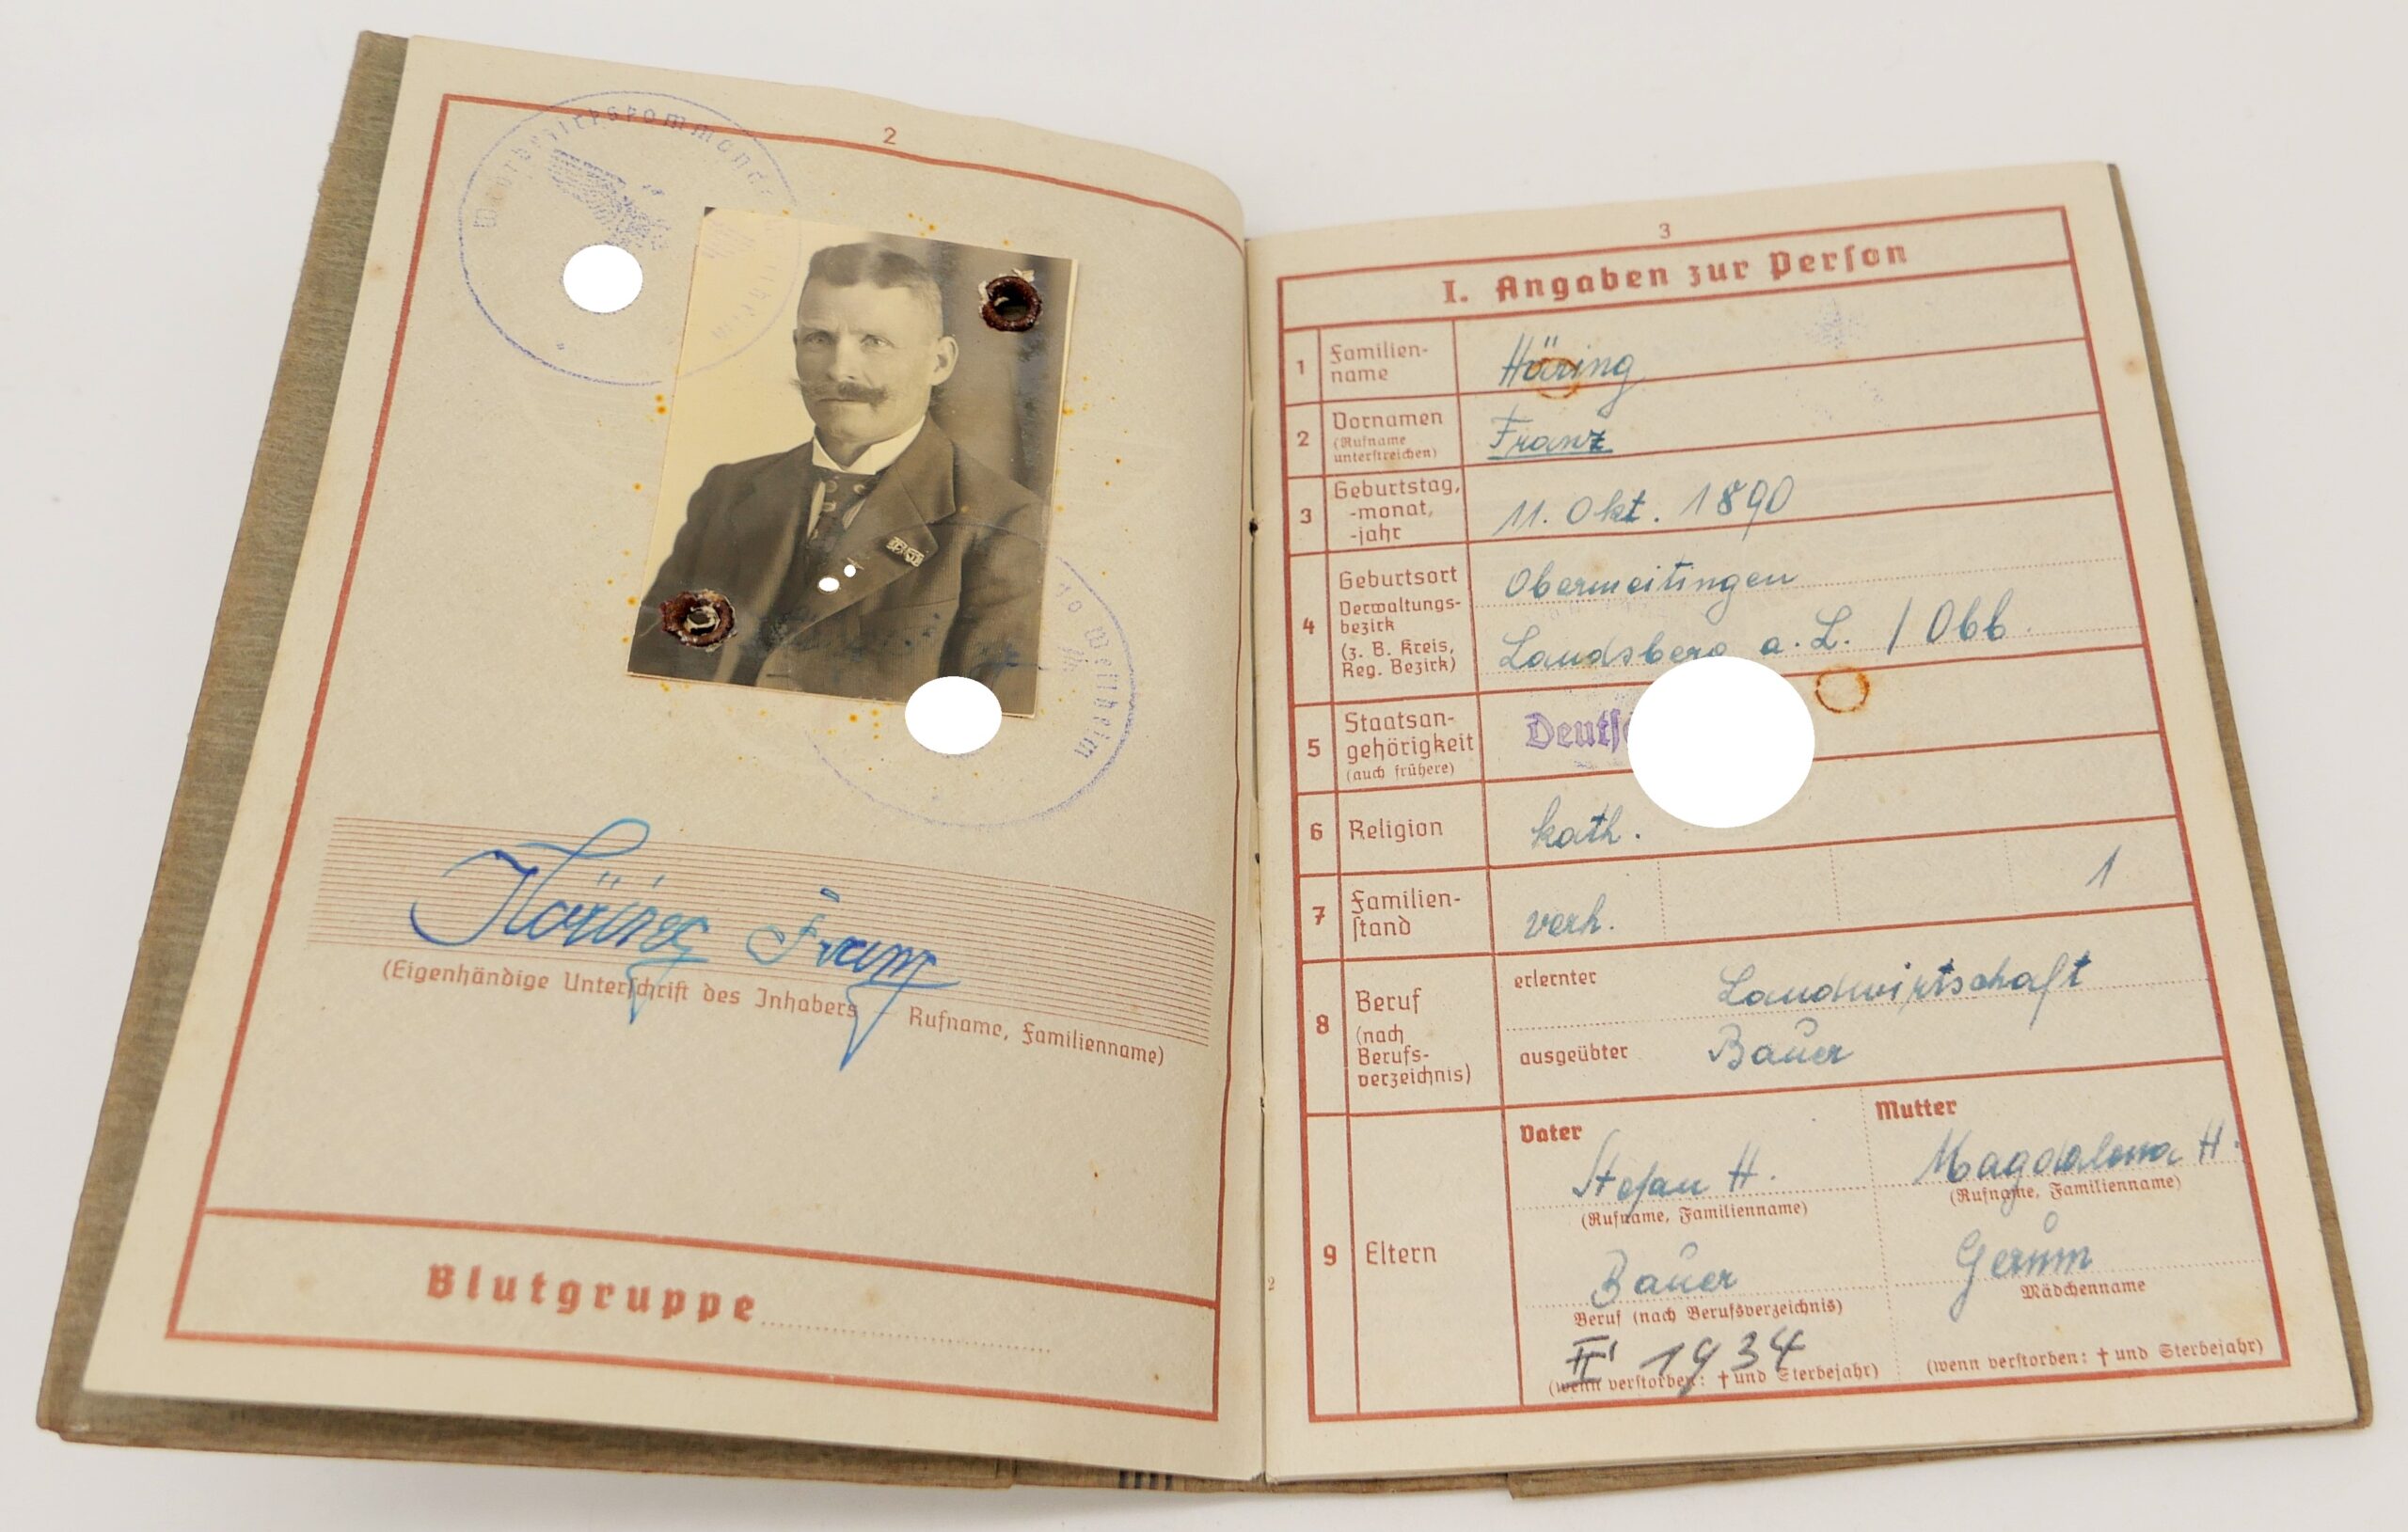 2
Wehrbezirkskommando
Weilheim
Weilheim
Höring Franz
(Eigenhändige Unterschrift des Inhabers – Rufname, Familienname)
Blutgruppe
3
I. Angaben zur Person
1 Familien-
name
Höring
2 Vornamen
(Rufname
unterstreichen)
Franz
3 Geburtstag,
-monat,
-jahr
11. Okt. 1890
4 Geburtsort
Verwaltungs-
bezirk
(z. B. Kreis,
Reg. Bezirk)
Obermeitingen
Landsberg a. L. / Obb.
5 Staatsan-
gehörigkeit
(auch frühere)
6 Religion
kath.
7 Familien-
stand
verh.
1
8 Beruf
(nach
Berufs-
verzeichnis)
erlernter Landwirtschaft
ausgeübter Bauer
9 Eltern
Vater
Stefan H.
(Rufname, Familienname)
Bauer
Beruf (nach Berufsverzeichnis)
1934
(wenn verstorben: † und Sterbejahr)
Mutter
Magdalena H.
(Rufname, Familienname)
Gerum
Mädchenname
(wenn verstorben: † und Sterbejahr)
2